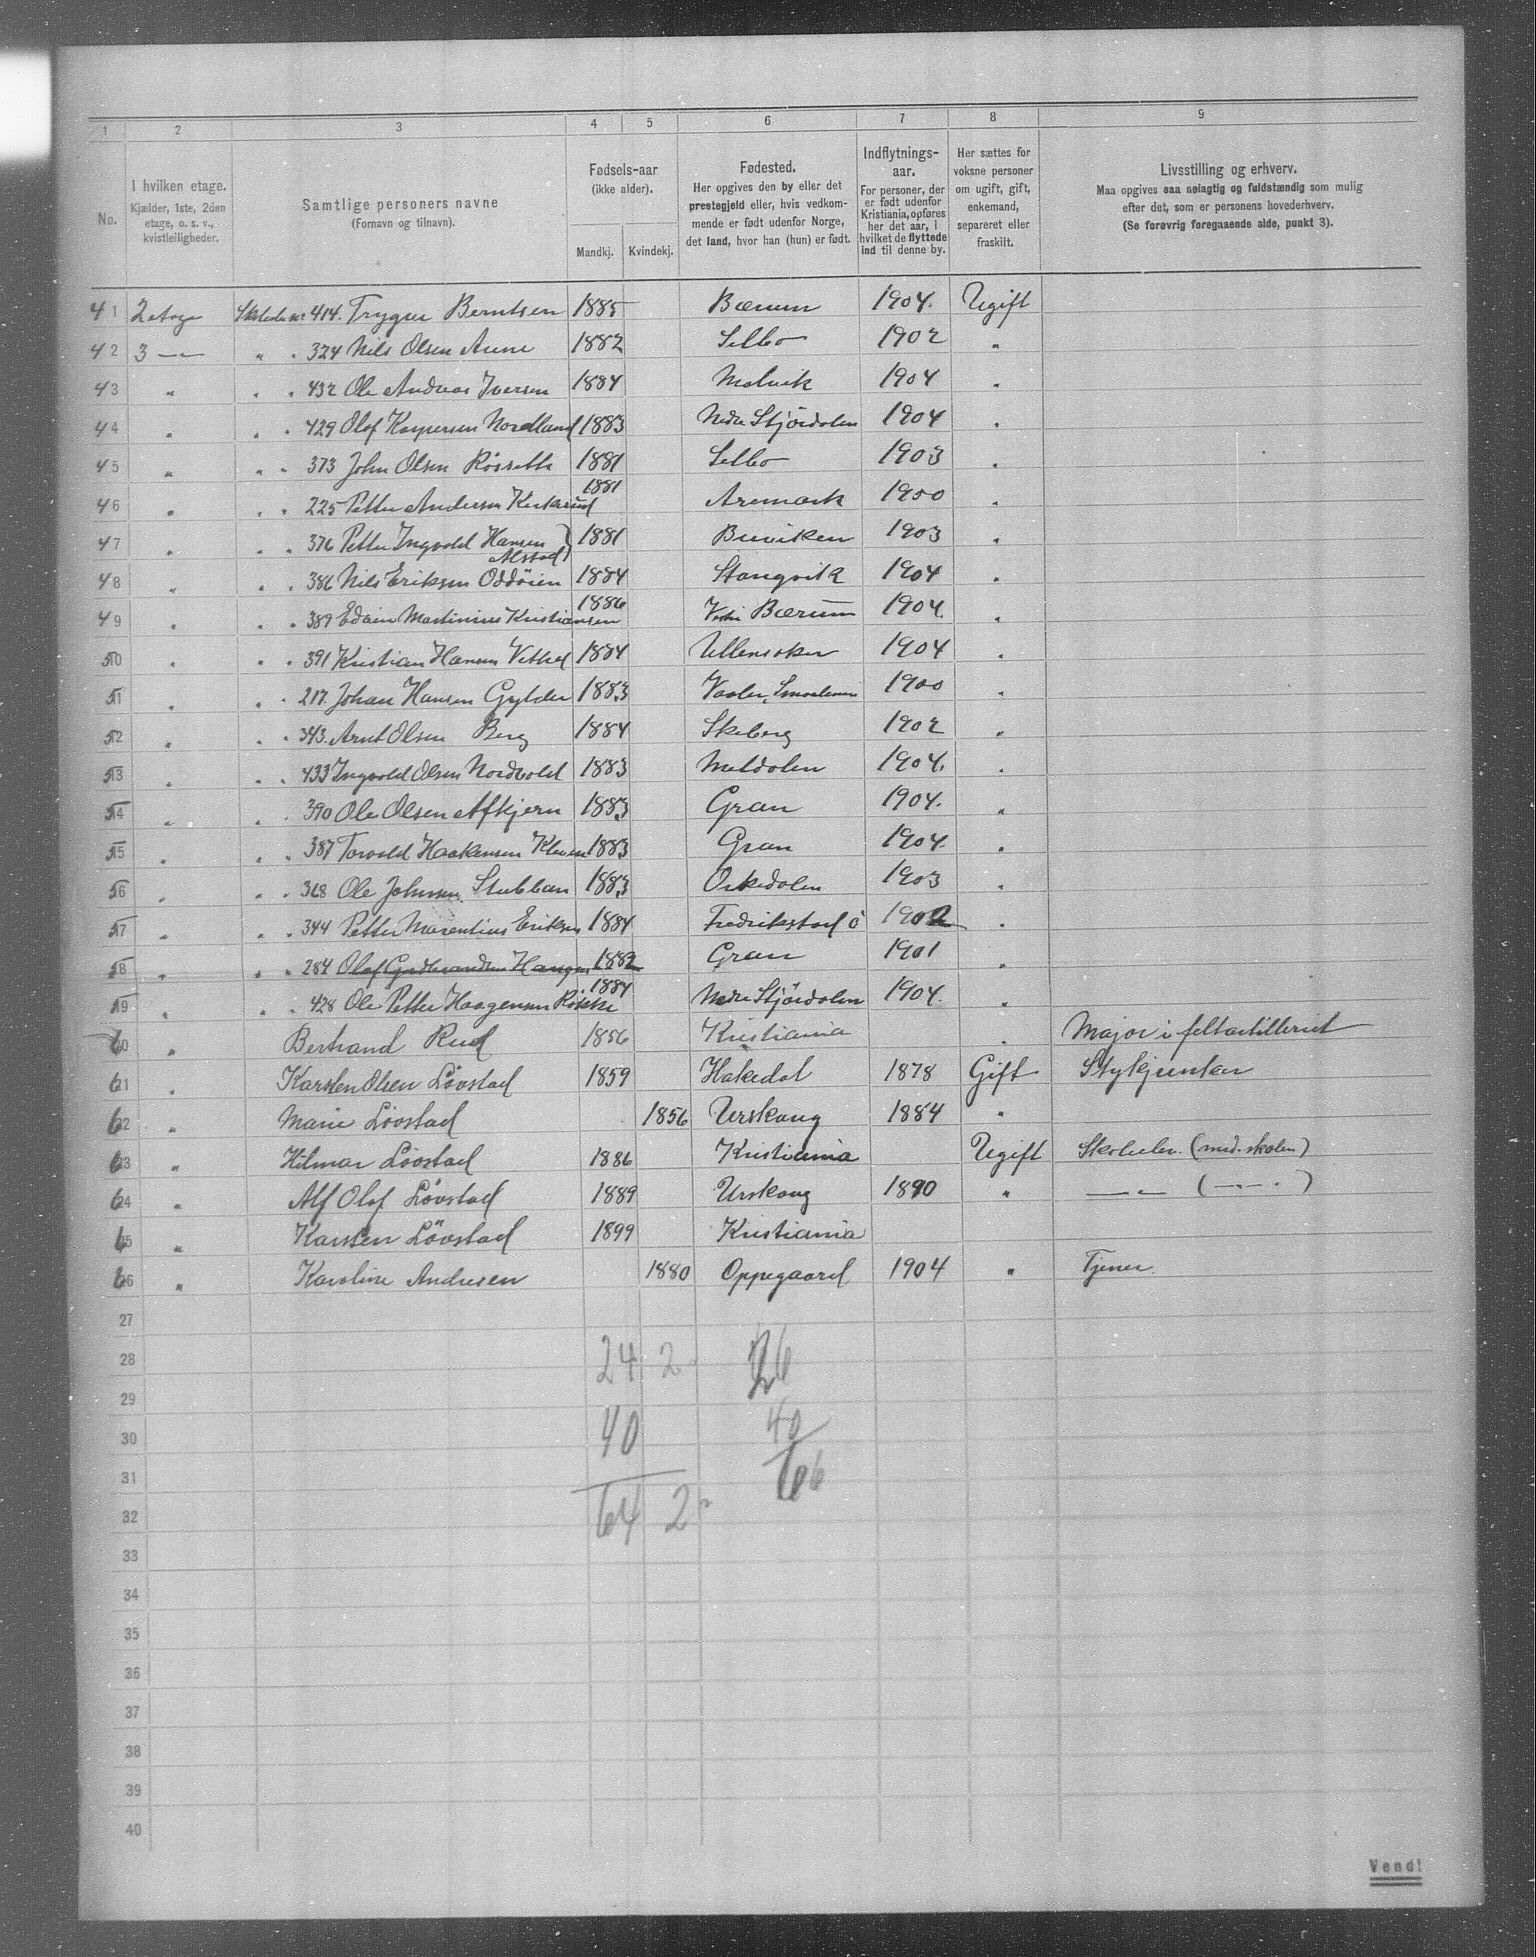 1 2 3 4 5 6 7 8 9
No.
I hvilken etage.
Kjælder, 1ste, 2den
etage, o. s. v.,
kvistleiligheder.
Samtlige personers navne
(Fornavn og tilnavn).
Fødsels-aar
(ikke alder).
Mandkj. Kvindekj.
Fødested.
Her opgives den by eller det
prestegjeld eller, hvis vedkom-
mende er født udenfor Norge,
det land, hvor han (hun) er født.
Indflytnings-
aar.
For personer, der
er født udenfor
Kristiania, opføres
her det aar, i
hvilket de flyttede
ind til denne by.
Her sættes for
voksne personer
om ugift, gift,
enkemand,
separeret eller
fraskilt.
Livsstilling og erhverv.
Maa opgives saa nøiagtig og fuldstændig som mulig
efter det, som er personens hovederhverv.
(Se forøvrig foregaaende side, punkt 3).
41 2 etage 414. Trygve Berntsen 1885 Bærum 1904. Ugift
42 3 — " " 324 Nils Olsen Aune 1882 Selbo 1902 "
43 " " " 432 Ole Andreas Iversen 1884 Malvik 1904 "
44 " " " 429 Olaf Kaspersen Nordland 1883 Nedre Stjördalen 1904 "
45 " " " 373 John Olsen Rösseth 1881 Selbo 1903 "
46 " " " 225 Petter Andersen 1881 Aremark 1900 "
47 " " " 376 Petter Ingvald Hansen 1881 Buviken 1903 "
Alstad
48 " " " 386 Nils Eriksen Oddöien 1884 Stangvik 1904 "
49 " " " 389 Edvin Martinius Kristiansen 1886 Vestre Bærum 1904. "
50 " " " 391 Kristian Hansen 1884 Ullensaker 1904 "
51 " " " 217. Johan Hansen Gylder 1883 Vaaler, Smaalenene 1900 "
52 " " " 343. Arnt Olsen Berg 1884 Skiberg 1902 "
53 " " " 433 Ingvald Olsen Nordvold 1883 Meldalen 1904. "
54 " " 390 Ole Olsen Afkjern 1883 Gran 1904. "
55 " " " 387 Torvald Haakensen 1883 Gran 1904. "
56 " " " 368 Ole Johnsen Stubban 1883 Orkedalen 1903 "
57 " " " 344 Petter Marentius Eriksen 1884 Fredrikstad ö 1902 "
58 " " " 284 Olaf Gudbrandsen Haugen 1882 Gran 1901 "
59 " " " 428 Ole Petter Haagensen Rokke 1884 Nedre Stjördalen 1904. "
60 " Bertrand Rud 1856 Kristiania " Major i feltartilleriet
61 " Karsten Olsen Lövstad 1859 Hakedal 1878 Gift Stykjunker
62 " Marie Lövstad 1856 Urskoug 1884 "
63 " Hilmar Lövstad 1886 Kristiania Ugift Skoleelev. (mid. skolen)
64 " Alf Olaf Lövstad 1889 Urskoug 1890 " — " — ( — " — )
65 " Karsten Lövstad 1899 Kristiania
66 " Karoline Andresen 1880 Oppegaard 1904 " Tjener.
27
28 24 2 26
29
30 40 40
31 66
32 64 2
33
34
35
36
37
38
39
40
Vend!